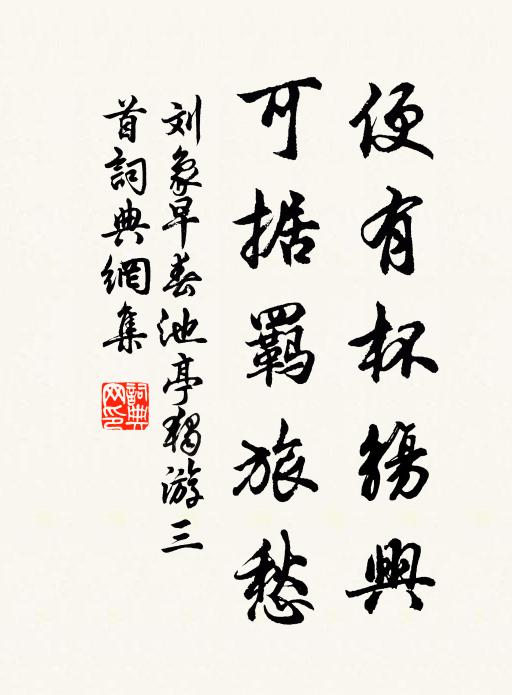 便有杯觴興
可据羁旅愁
刘象早春池亭独游三
首詞典網集
詞典网印